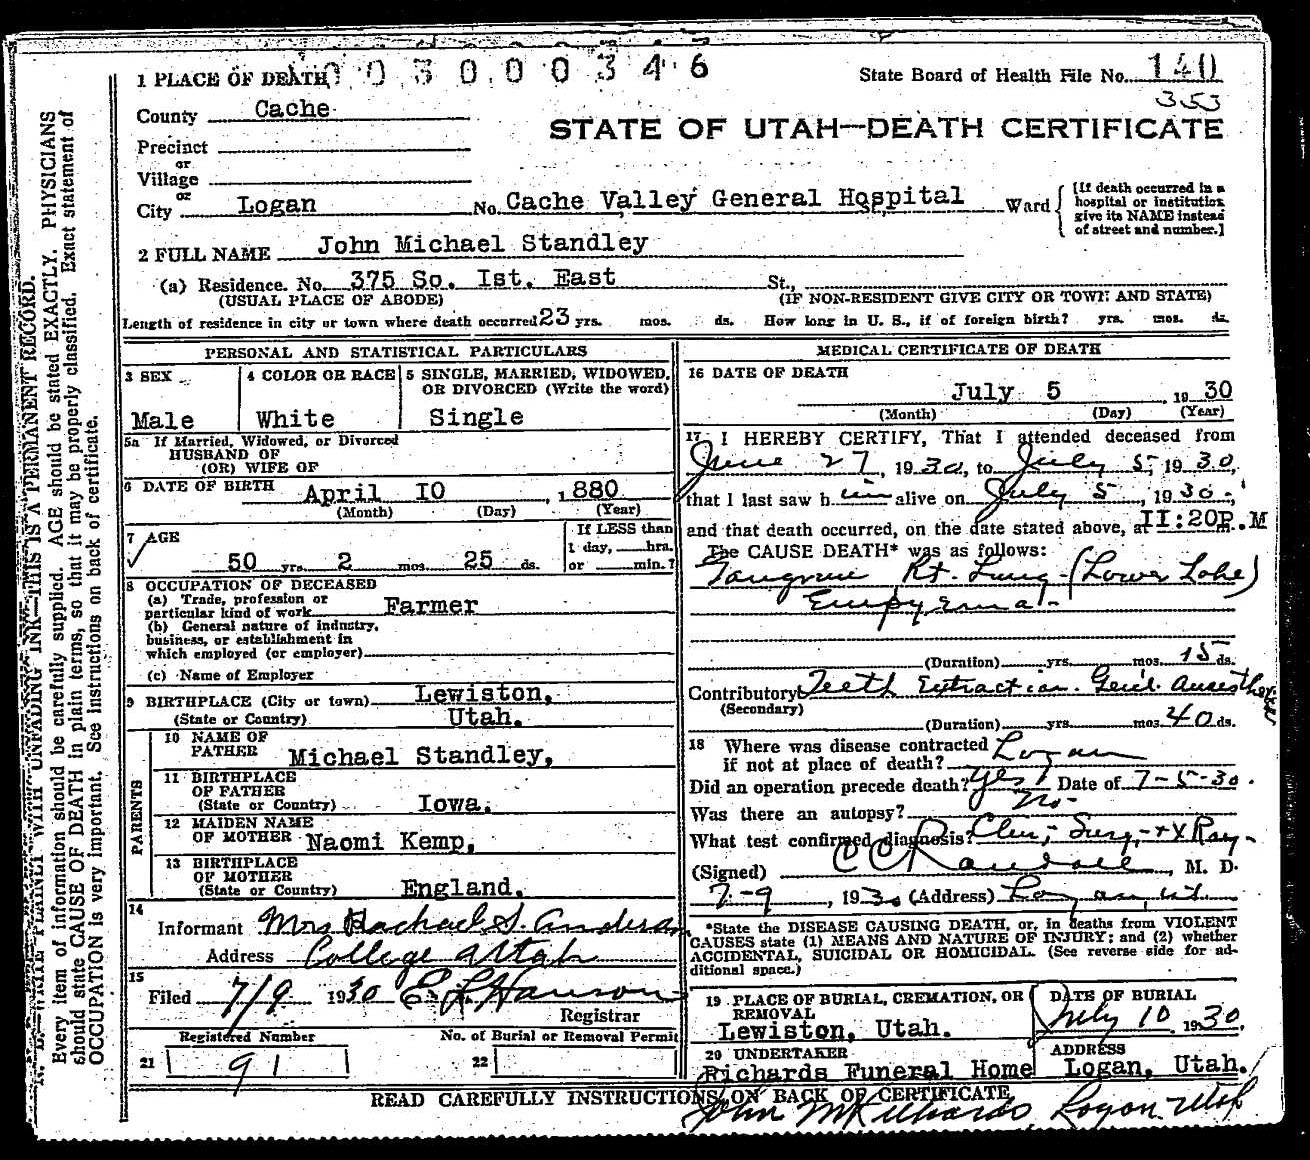 1 PLACE OF DEATH 0030000346
State Board of Health File No. 140
353
County Cache
STATE OF UTAH—DEATH CERTIFICATE
Precinct
or
Village
or
City Logan No. Cache Valley General Hospital Ward
[If death occurred in a
hospital or institution
give its NAME instead
of street and number.]
2 FULL NAME John Michael Standley
(a) Residence. No. 375 So. Ist. East St.,
(USUAL PLACE OF ABODE) (IF NON-RESIDENT GIVE CITY OR TOWN AND STATE)
Length of residence in city or town where death occurred 23 yrs. mos. ds. How long in U. S., if of foreign birth? yrs. mos. ds.
PERSONAL AND STATISTICAL PARTICULARS
3 SEX
Male
4 COLOR OR RACE
White
5 SINGLE, MARRIED, WIDOWED,
OR DIVORCED (Write the word)
Single
5a If Married, Widowed, or Divorced
HUSBAND OF
(OR) WIFE OF
6 DATE OF BIRTH April IO, 1880
(Month) (Day) (Year)
7 AGE
50 yrs. 2 mos. 25 ds.
If LESS than
1 day, hrs.
or min.?
8 OCCUPATION OF DECEASED
(a) Trade, profession or
particular kind of work Farmer
(b) General nature of industry,
business, or establishment in
which employed (or employer)
(c) Name of Employer
9 BIRTHPLACE (City or town) Lewiston,
(State or Country) Utah.
PARENTS
10 NAME OF
FATHER Michael Standley,
11 BIRTHPLACE
OF FATHER
(State or Country) Iowa.
12 MAIDEN NAME
OF MOTHER Naomi Kemp,
13 BIRTHPLACE
OF MOTHER
(State or Country) England.
14
Informant Mrs Rachael S. Anderson
Address College Utah
15
Filed 7/9 1930 E. L. Hanson
Registrar
Registered Number No. of Burial or Removal Permit
21 91 22
MEDICAL CERTIFICATE OF DEATH
16 DATE OF DEATH
July 5, 1930
(Month) (Day) (Year)
17 I HEREBY CERTIFY, That I attended deceased from
June 27, 1930, to July 5, 1930,
that I last saw h im alive on July 5, 1930,
and that death occurred, on the date stated above, at II:20P.M
The CAUSE DEATH* was as follows:
Gangrene Rt. Lung (Lower Lobe)
Empyema
(Duration) yrs. mos. 15 ds.
Contributory Teeth Extraction. Gen'l. Anesthesia
(Secondary)
(Duration) yrs. mos. 40 ds.
18 Where was disease contracted
if not at place of death? Logan
Did an operation precede death? Yes Date of 7-5-30.
Was there an autopsy? No-
What test confirmed diagnosis? Clin, Surg, + X Ray-
(Signed) C C Randall, M. D.
7-9, 1930 (Address) Logan, Ut
*State the DISEASE CAUSING DEATH, or, in deaths from VIOLENT
CAUSES state (1) MEANS AND NATURE OF INJURY; and (2) whether
ACCIDENTAL, SUICIDAL OR HOMICIDAL. (See reverse side for ad-
ditional space.)
19 PLACE OF BURIAL, CREMATION, OR
REMOVAL
Lewiston, Utah.
DATE OF BURIAL
July 10, 1930.
20 UNDERTAKER
Richards Funeral Home
ADDRESS
Logan, Utah.
READ CAREFULLY INSTRUCTIONS ON BACK OF CERTIFICATE
John M Richards, Logan Utah
N. B.—WRITE PLAINLY WITH UNFADING INK—THIS IS A PERMANENT RECORD.
Every item of information should be carefully supplied. AGE should be stated EXACTLY. PHYSICIANS
should state CAUSE OF DEATH in plain terms, so that it may be properly classified. Exact statement of
OCCUPATION is very important. See Instructions on back of certificate.